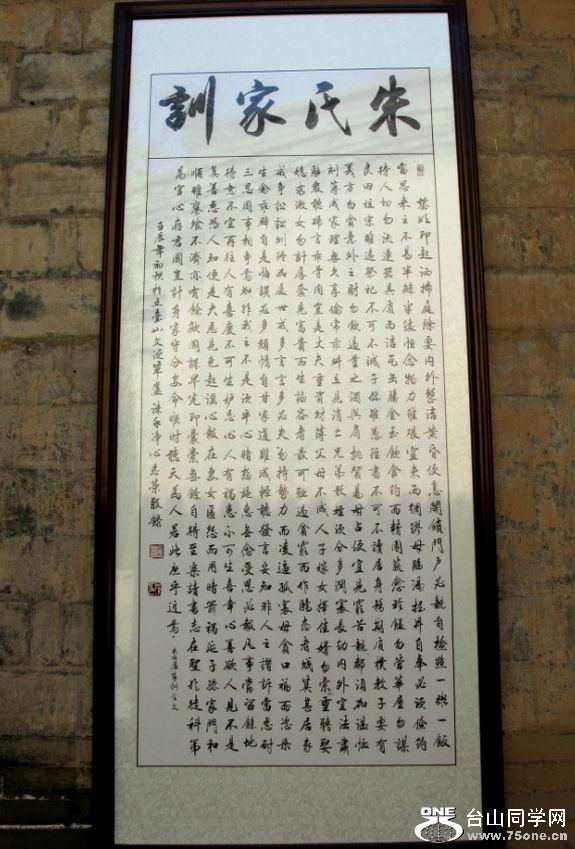 朱氏家訓
黎明即起洒掃庭除要內外整潔黃昏便息關鎖門戶必親自檢點一粥一飯
當思來之不易半絲半縷恒念物力維艱宜未雨而綢繆毋臨渴掘井自奉必須儉約
待人切勿流連器具質而潔瓦缶勝金玉飲食約而精園蔬愈珍饈勿營華屋勿謀
良田祖宗雖遠祭祀不可不誠子孫雖愚經書不可不讀居身務期質樸教子要有
義方勿貪意外之財勿飲過量之酒與肩挑貿易毋占便宜見窮苦親鄰須加溫恤
刻薄成家理無久享倫常乖舛立見消亡兄弟叔姪須分多潤寡長幼內外宜法肅
辭嚴聽婦言乖骨肉豈是丈夫重資財薄父母不成人子嫁女擇佳婿勿索重聘娶
媳求淑女勿計厚奩見富貴而生諂容者最可恥遇貧窮而作驕態者賤莫甚居家
戒爭訟訟則終凶處世戒多言言多必失勿恃勢力而凌逼孤寡毋貪口福而恣殺
生禽乖僻自是悔誤必多頹惰自甘家道難成輕聽發言安知非人之譖訴當忍耐
三思因事相爭焉知非我之不是須平心暗想施惠無念受恩必報凡事當留餘地
得意不宜再往人有喜慶不可生妒忌心人有禍患不可生喜幸心善欲人見不是
真善惡恐人知便是大惡見色起淫心報在妻女匿怨而用暗箭禍延子孫家門和
順雖饔飧不濟亦有餘歡國課早完即囊橐無餘自得至樂讀書志在聖非徒科第
為官心存君國豈計身家守分安命順時聽天為人若此庶乎近焉 朱柏廬家訓全文
壬辰年初秋於五臺山文殊草廬 淨心志榮敬錄
ONE 台山同学网
www.75one.cn